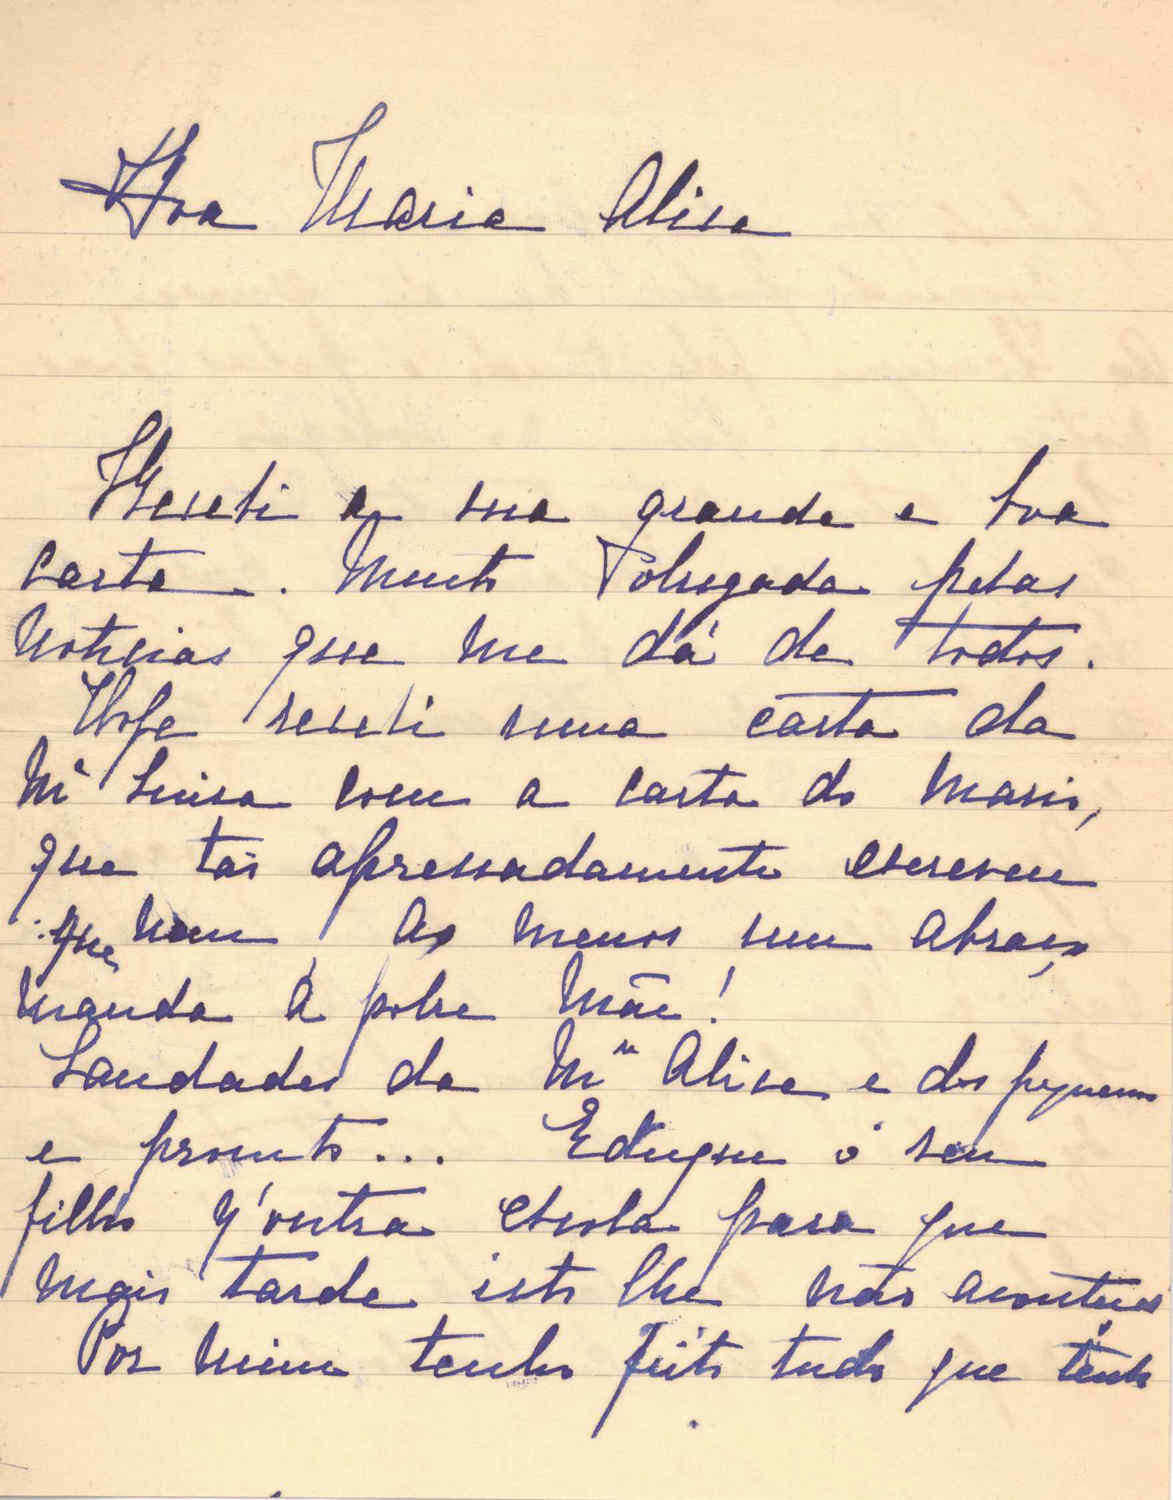 Boa Maria Alisa
Recebi a sua grande e boa
carta. Muito obrigada pelas
noticias que me dá de todos.
Hoje recebi uma carta da
Mª Luisa com a carta do Mario,
que tão apressadamente escreveu
que nem, ao menos um abraço
manda á pobre Mãe!
Saudades da Mª Alisa e dos pequenos
e pronto... Eduque o seu
filho n'outra escola para que
mais tarde isto lhe não aconteça
Por mim tenho feito tudo que tenho